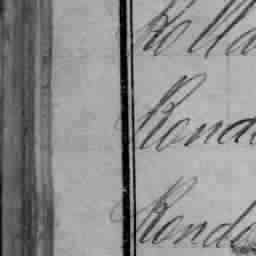 Rolla
Rond
Rondo